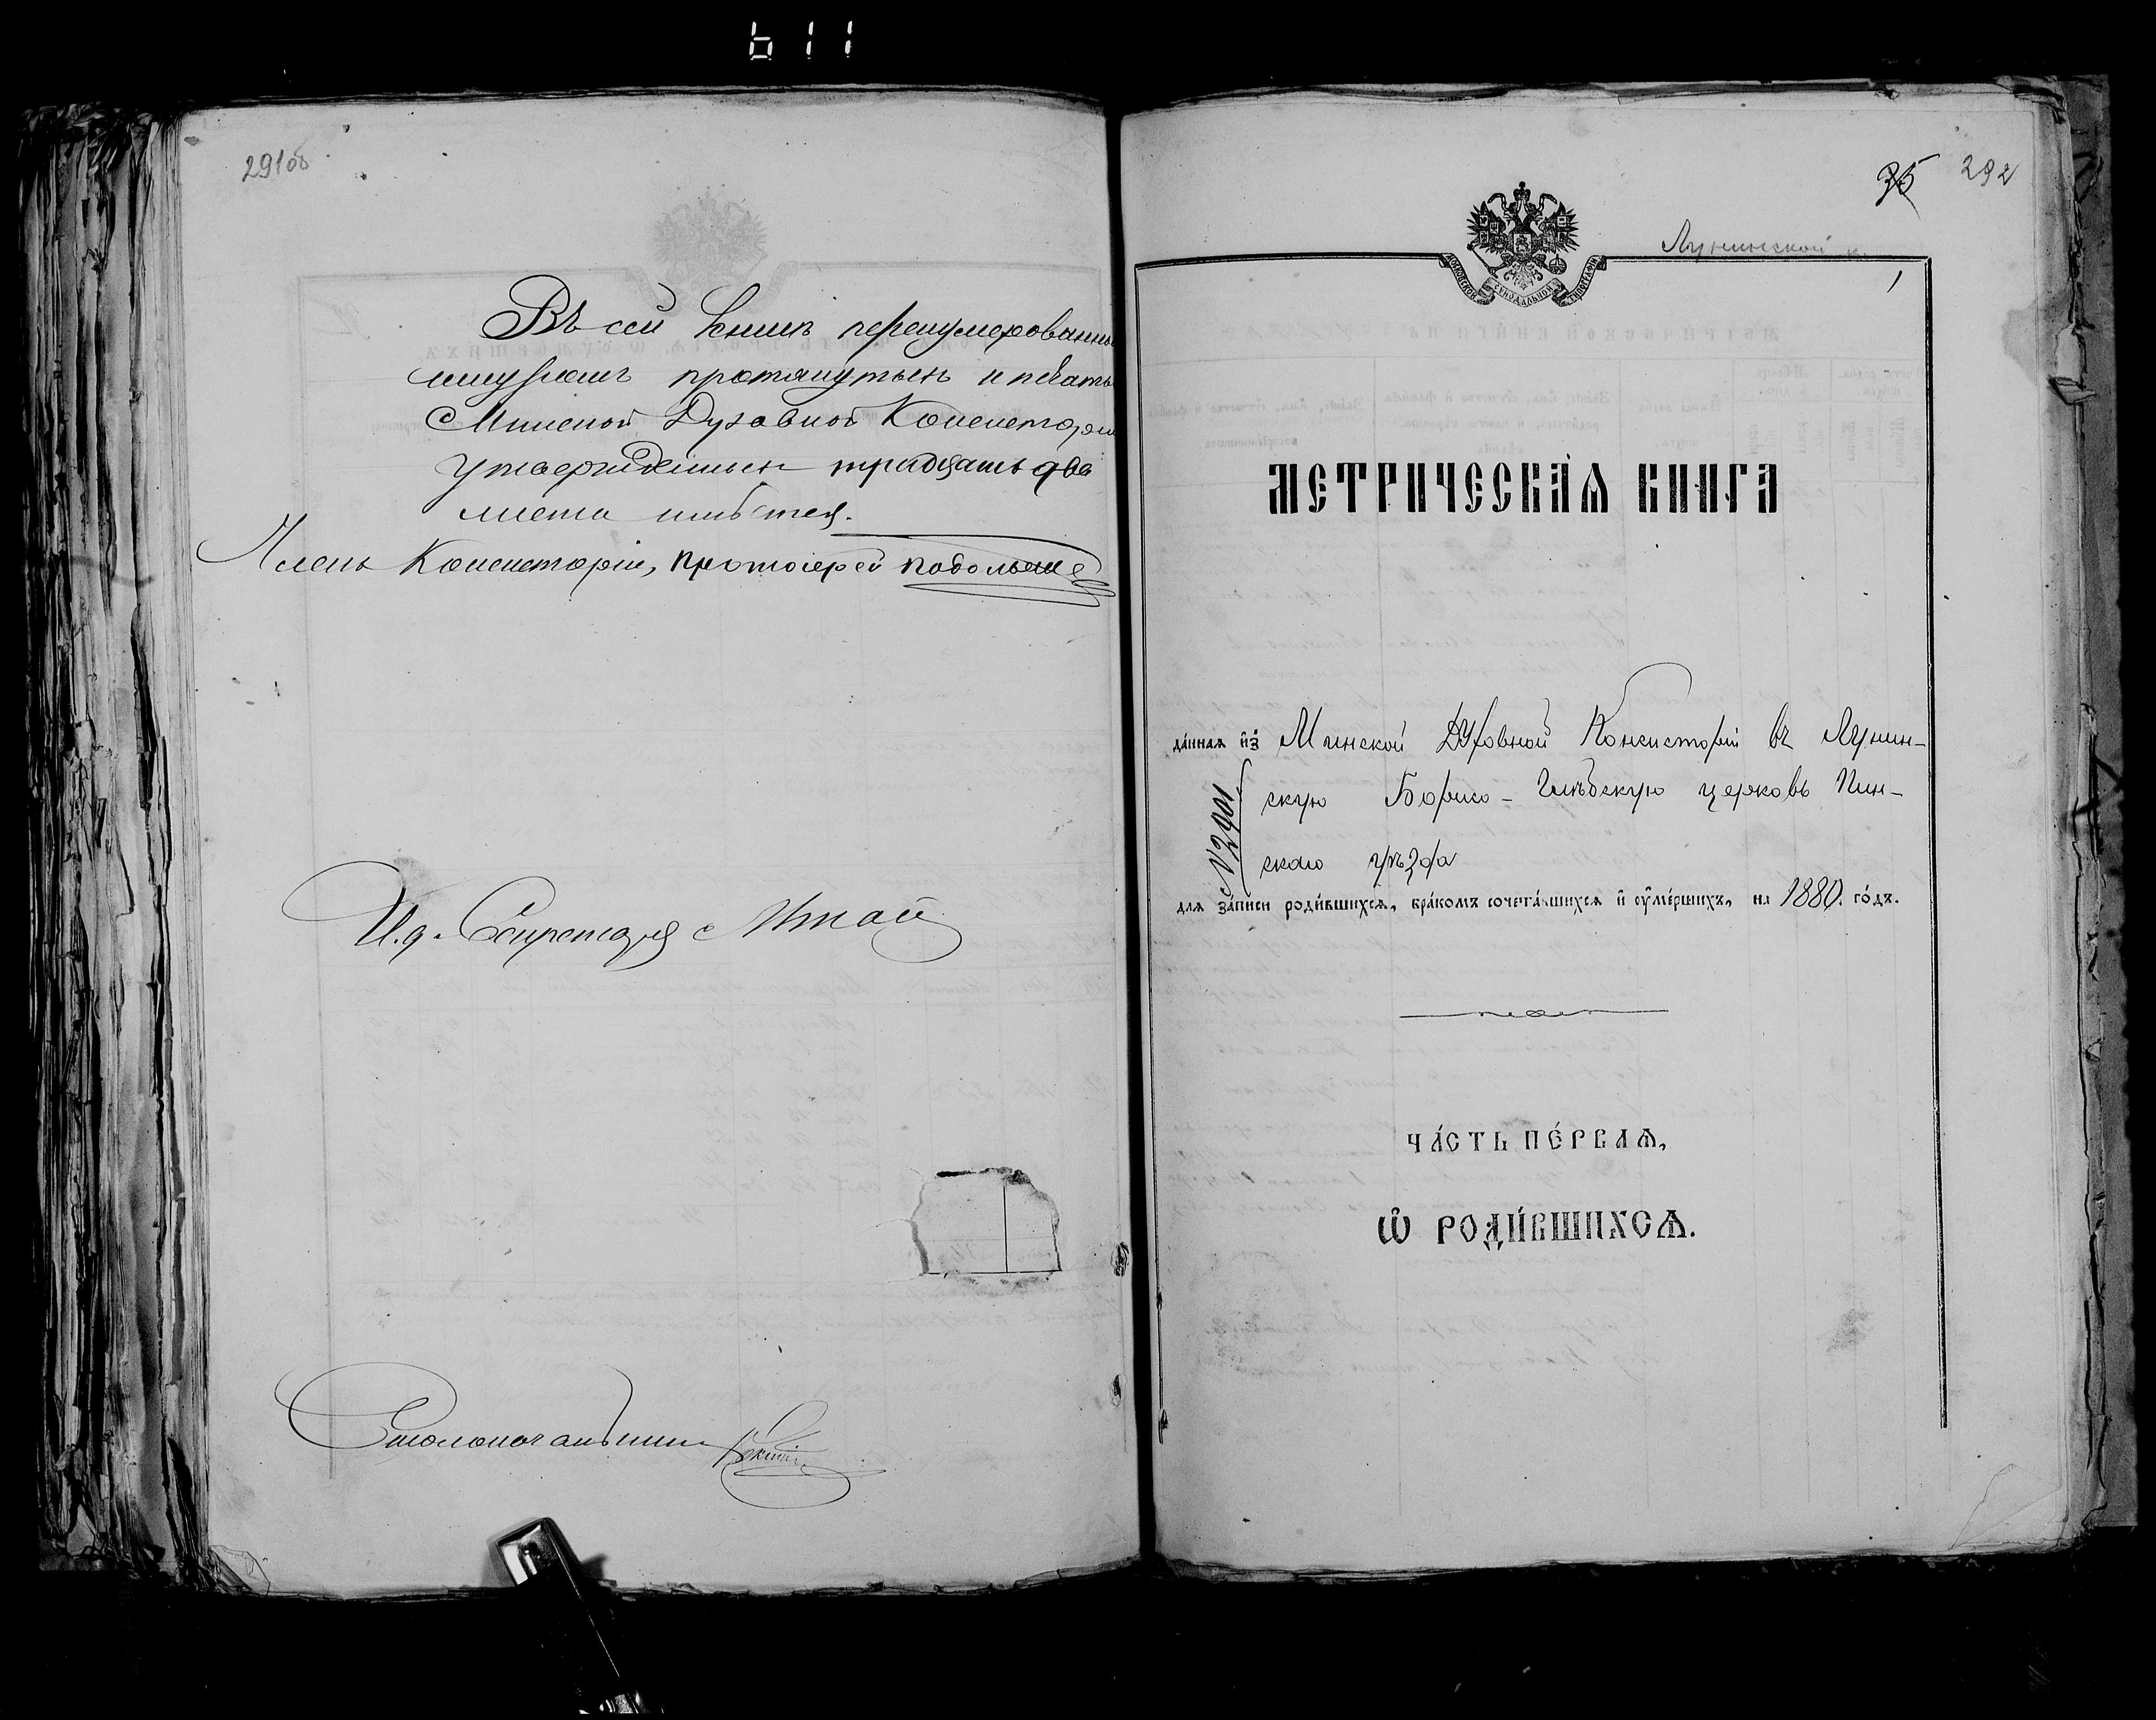 611
291об
Въ сей книгѣ перенумерованны
шнуромъ протянутыхъ и печатью
Минской Духовной Консисторіи
утвержденныхъ тридцать два
листа имѣется.
Членъ Консисторіи, Протоіерей
И. д. Секретаря
Столоначальникъ
35 292
Лунинской
1
МОСКОВСКОЙ СѴНОДАЛЬНОЙ ТИПОГРАФІИ
МЕТРИЧЕСКАЯ КНИГА
да́нная из̾ Минской Духовной Консисторіи въ Лунин-
скую Борисо-Глѣбскую церковь Пин-
скаго уѣзда
№2901
для за́писи роди́вшихсѧ, бра́комъ сочета́вшихсѧ и҆ ᲂу҆ме́ршихъ, на 1880. го́дъ.
ЧА́СТЬ ПЕ́РВАѦ,
Ѽ РОДИ́ВШИХСѦ.